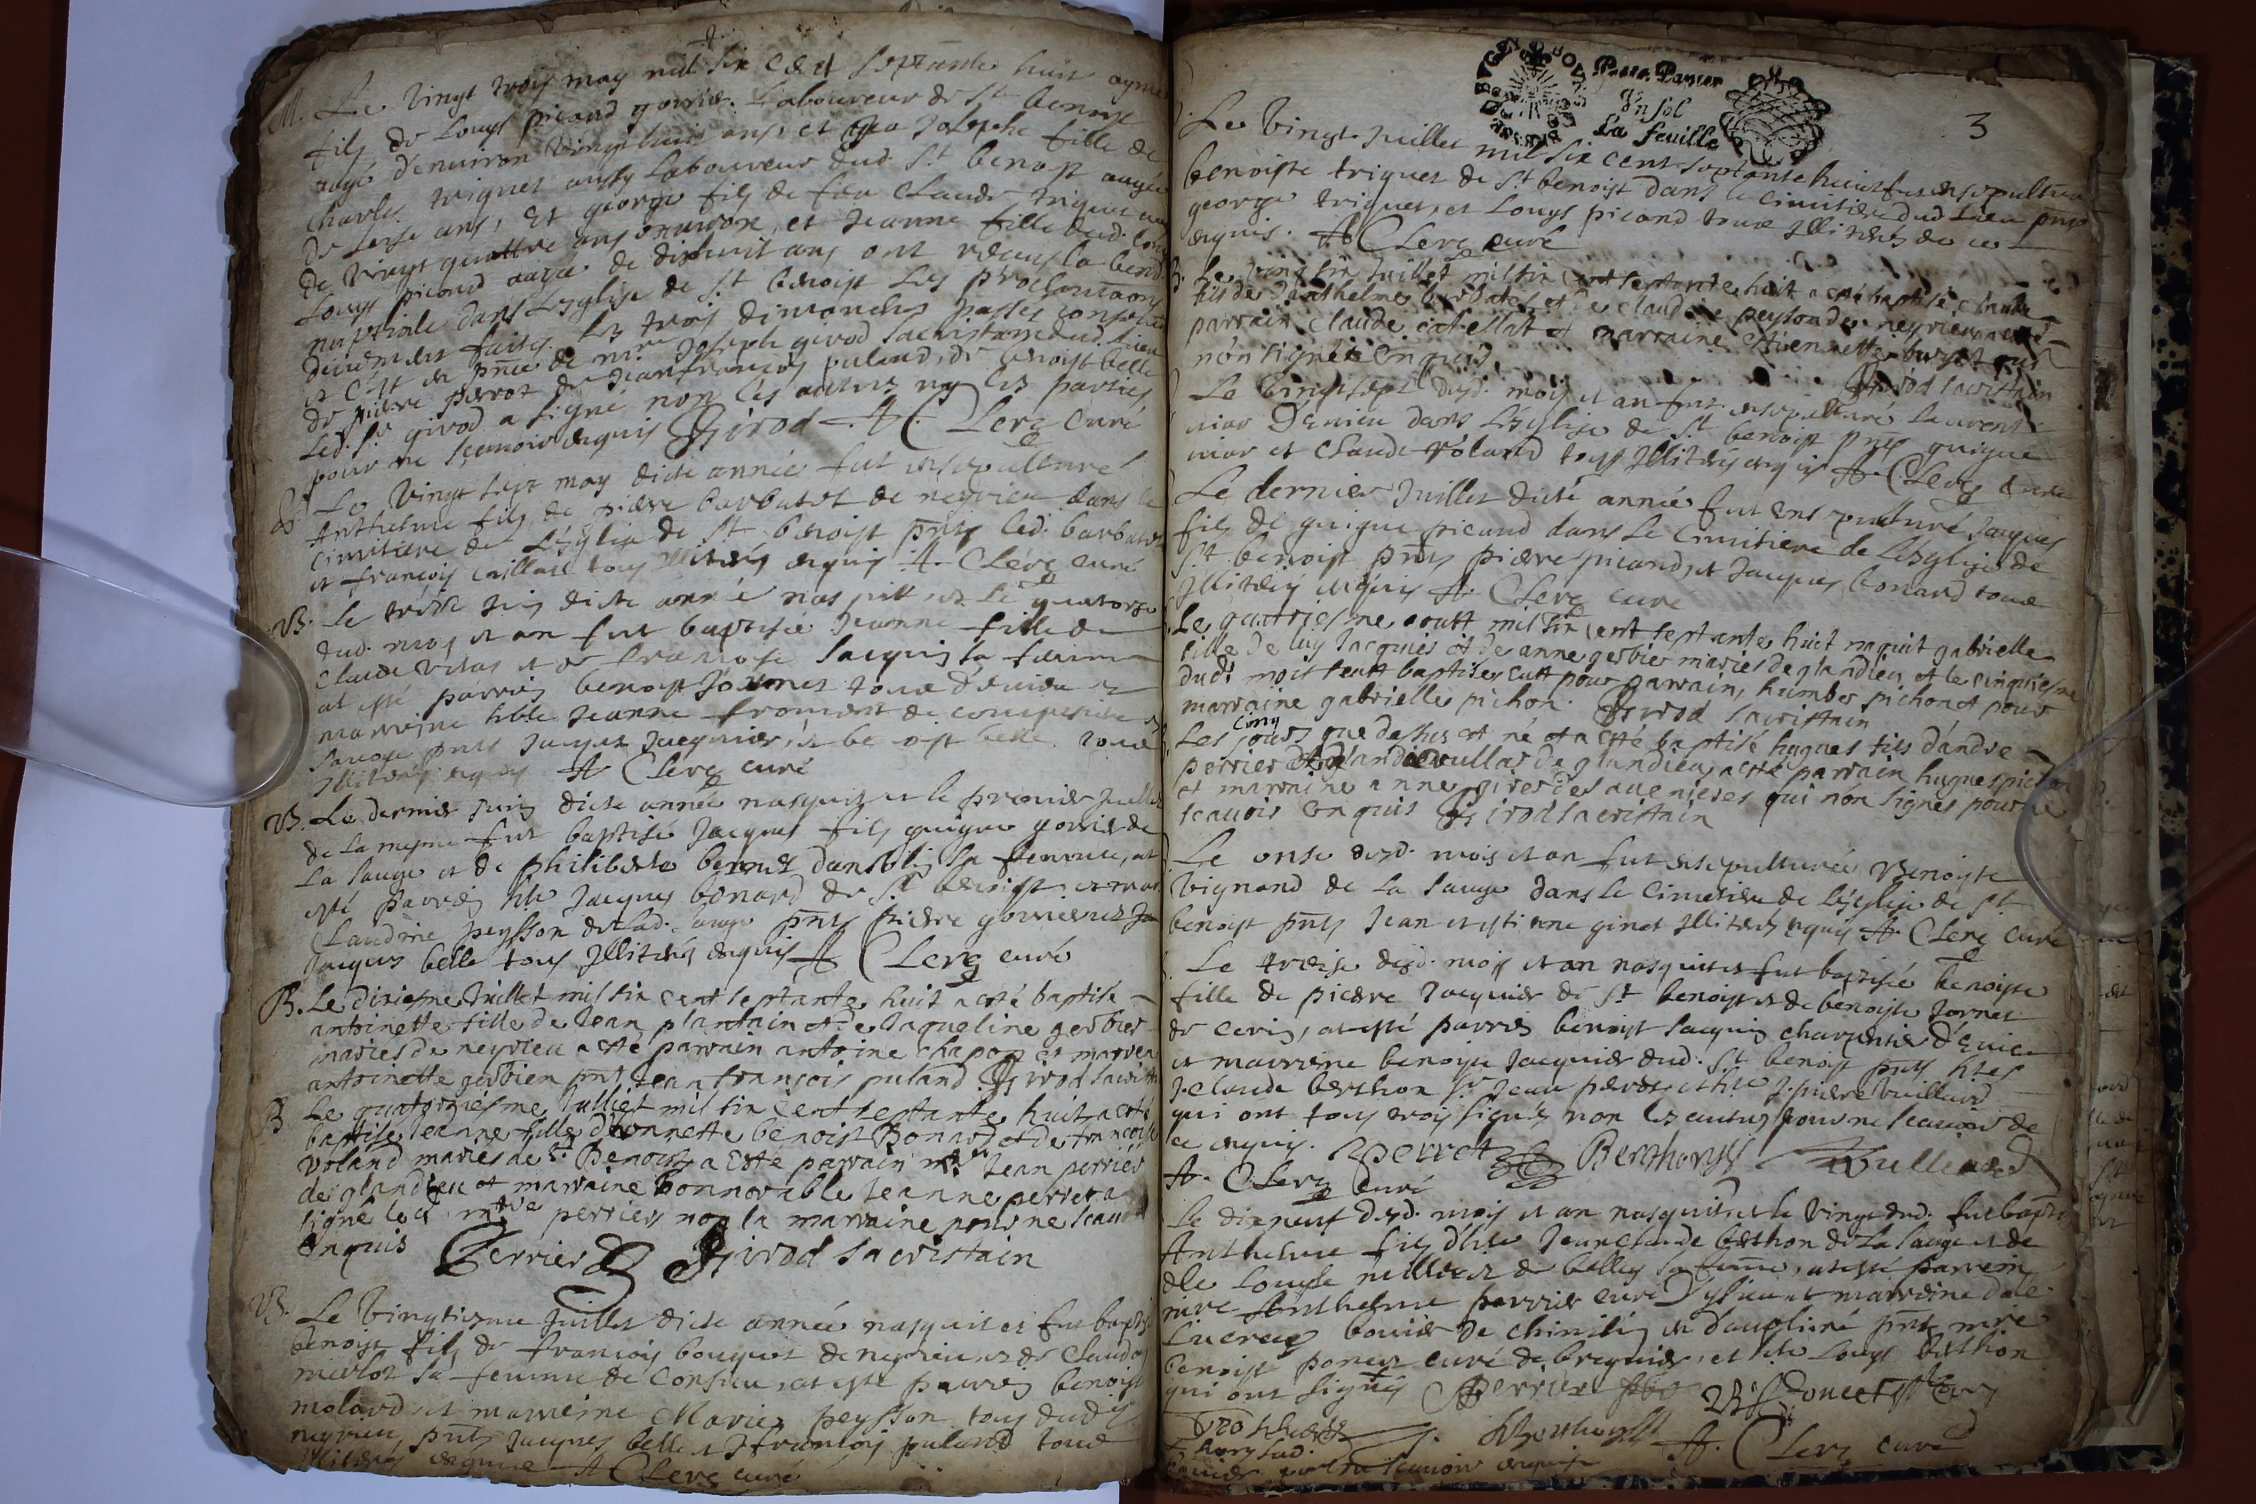 M. Le Vingt trois may mil six cent septante huit ayme
fils de Louys picand gonin Laboureur de St benoist
aagé d'enuiron Vingthuit ans et Josephe fille de
Charles triquet aussy Laboureur dud. St benoist aagée
de seise ans, Et george fils de feu Claude triquet aagé
de Vingt quattre ans enuiron, et Jeanne fille dud. Louys
Louys picand aagée de dixhuit ans ont receus la bened
nuptiale dans L'Esglise de St benoist Les proclamaons
deuement faites Les trois dimanches passés
et C'est en pnce de mre Joseph girod sacristain dud. Lieu
de piere perrot de Jeanfrançois puland, de benoist belle
Led. Sr girod a signé non les autres ny les parties
pour ne sçauoir enquis Girod A. Clerc Curé
Le Vingt sept may dicte année fut ensepulturé
Anthelme fils de piere barbatet de neyrieu dans le
Cimitiere de L'Esglise de St benoist pnts led. barbatet
et françois caillat tous illiterés enquis A. Clerc curé
B. Le treise Juin dicte année nasquit et Le quatorse
dud. mois et an fut baptisée Jeanne fille de
Claude Vitas et de francoise Jacquin sa femme
at esté parrein benoist Jornet
marreine hble Jeanne froment de
pnts Jacques Jacquier et benoist belle tous
illiterés enquis A. Clerc curé
B. Le dernier Juin dicte année nasquit et le premier Juillet
de La mesme fut baptisé Jacques fils guigue gonin de
La sauge et de philiberte bernet sa femme, at
esté parrein hble Jacques bonard de St benoist et mar
Claudine peysson de Lad. sauge pnts piere
Jacques belle tous illiterés enquis A. Clerc curé
B. Le dixiesme Juillet mil six cent septante huit a esté baptisé
antoinette fille de Jean plantain et de Jaqueline gerbier
maries de neyrieu a esté parrain antoine chapot et marren
antoinette gerbien pnt Jean françois puland. Girod sacristn
B Le quatorziesme Julliet mil six cent septante huit a esté
baptisé Jeanne fille d'honnette benoist Bonard et de francoise
Voland maries de St Benoist a esté parrain mre Jean perrier
de glandieu et marraine honnorable Jeanne perret a
signé led. mre perrier non la marraine pour ne scauoir
enquis Perrier Girod sacristain
B. Le Vingtiesme Juillet dicte année nasquit et fut bapt
benoist fils de francois bouquet de neyrieu et de Claud
merlot sa femme de Consieu at esté parrein benoist
molard et marreine Marie peysson tous dud.
neyrieu, pnts Jacques belle et Jfrançois puland tous
illiterés enquis A. Clerc curé
Pour Papier
Vn sol
La feuille
3
Le Vingt Juillet mil six cent septante huit fut ensepulturée
benoiste triquet de St benoist dans le Cimitiere dud. Lieu pnts
george triquet, et Louys picand tous illiterés de ce
enquis. A. Clerc curé
B. Le vingt six Juillet mil six cent septante huit a esté baptisé claude
fils de Janthelme barbatet et de claudine peysson de neyrieu a esté
parrain claude catellat et marraine Etiennette buyet qui
n'on signés enquis. Girod sacristain
Le Vingt sept dud. mois et an fut ensepulturé Laurent
d'Euieu dans L'Esglise de St benoist pnts guigue
et Claude Voland tous illiterés enquis A. Clerc curé
Le dernier Juillet dicte année fut ensepulturé Jaques
fils de guigue picand dans Le Cimitiere de L'Esglise de
St benoist pnts piere picand, et Jacques bonard tous
illiterés enquis A. Clerc curé
Le quatriesme aoust mil six cent septante huit naquit gabrielle
fille de luy Jacquier et de anne gerbier maries de glandieu et le cinquiesme
dudt mois feust baptisé eust pour parrain, humber pichon et pour
marraine gabrielle pichon. Girod sacristain
Les Jours cinq que dessus est né et a esté baptisé hugues fils d'andre
perrier et d'andree ullas de glandieu, a esté parrain hugues pichon
et marraine anne girerd des auenieres qui n'on signés pour ne
scauoir enquis Girod sacristain
Le onse dud. mois et an fut ensepulturée Benoiste
Vignand de La Sauge dans Le Cimitiere de L'Esglise de St
benoist pnts Jean et estienne ginet illiterés enquis A. Clerc curé
Le treise dud. mois et an nasquit et fut baptisée benoiste
fille de piere Jacquier de St benoist et de benoiste Jornet
de Cerin, at esté parrein benoist Jacquin charpentier d'Euieu
et marreine benoiste Jacquier dud. St benoist pnts hbles
J.claude berthon Sr Jean perret et hble J.piere Vuillerod
qui ont tous trois signés non les autres pour ne scauoir de
ce enquis. Perret Berthonj Vullierod
A. Clerc curé
Le dixneuf dud. mois et an nasquit et le Vingt dud. fut bapt
Anthelme fils d'hble Jeanclaude berthon de La Sauge et de
dlle Louyse millieret de belley sa femme, at esté parrein
mre Anthelme perrier curé d'yssieu et marreine dlle
Lucrece bouuier de chimilin en dauphiné pnts mre
benoist poncet curé de bregnier, et hble Louys berthon
qui ont signés Perrier pbr B. Poncet Curé
Berthonj A. Clerc curé
ne scauoir enquise